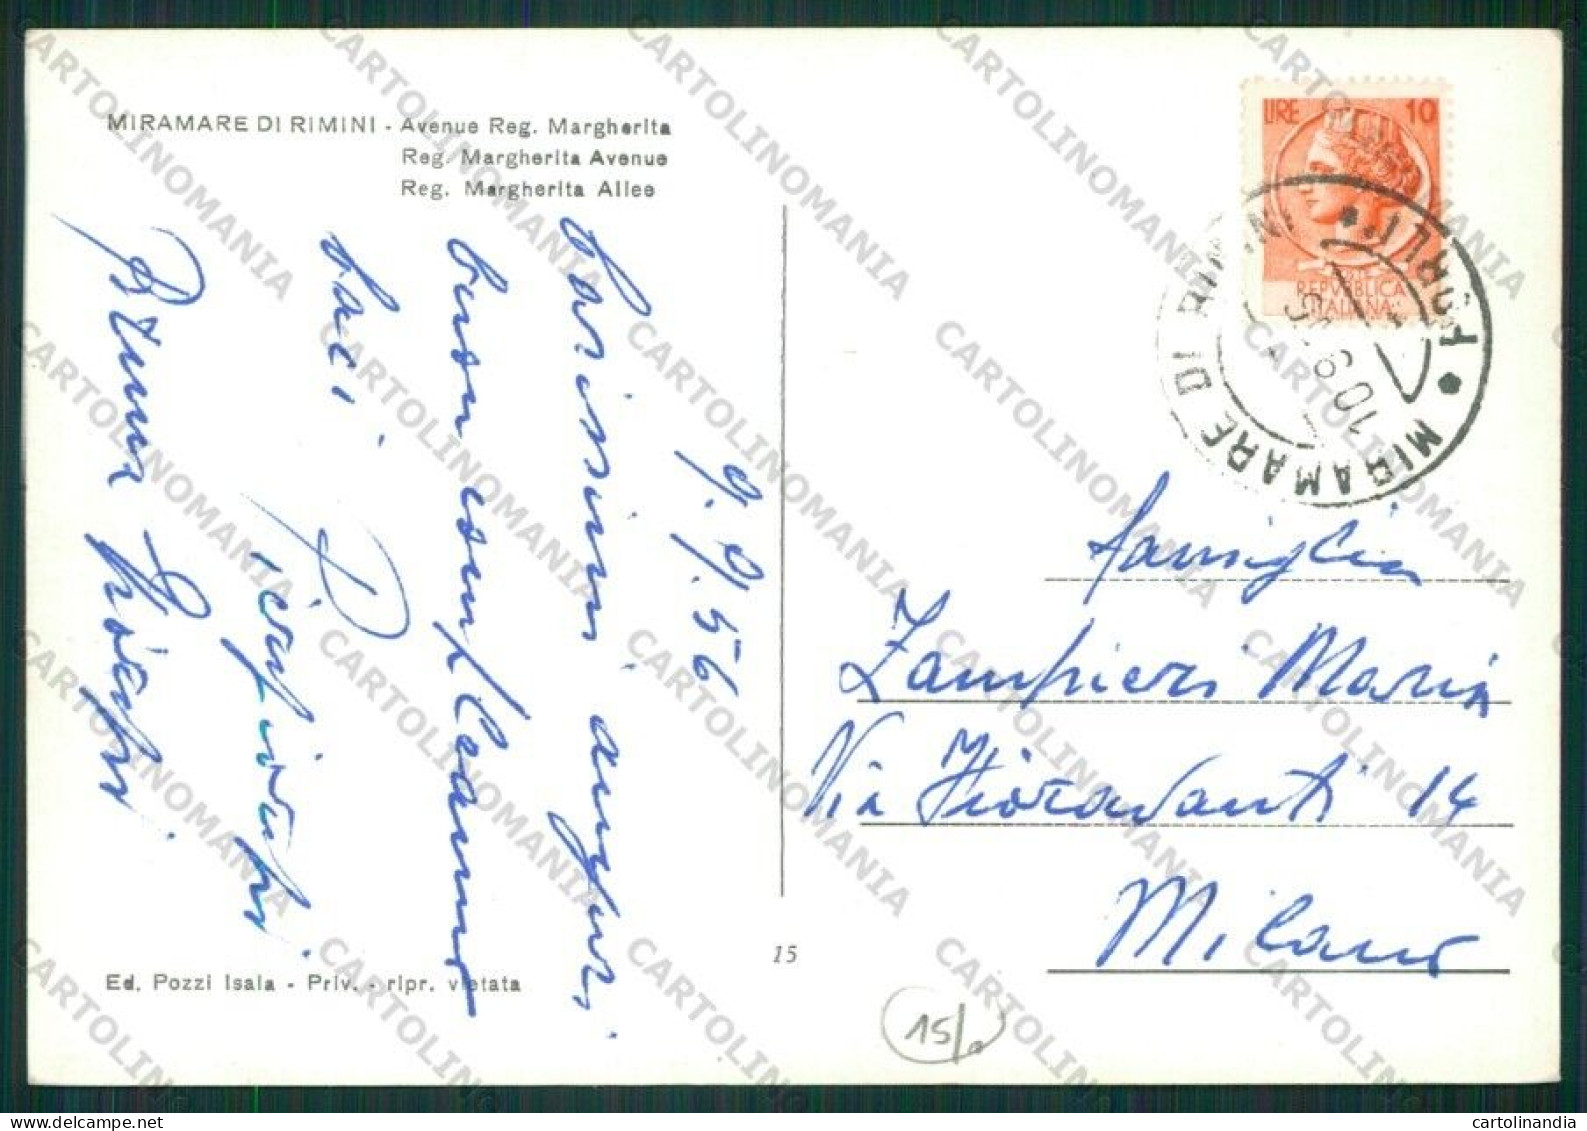 MIRAMARE DI RIMINI - Avenue Reg. Margherita
Reg. Margherita Avenue
Reg. Margherita Allee
9.9.56
Carissimi auguri
buon compleanno
baci
Bruna
LIRE 10
REPVBBLICA
ITALIANA
MIRAMARE DI RIMINI
FORLI
10 9
famiglia
Zampieri Maria
Via Fioravanti 14
Milano
15
Ed. Pozzi Isala - Priv. - ripr. vietata
15/
CARTOLINOMANIA
cartolinandia